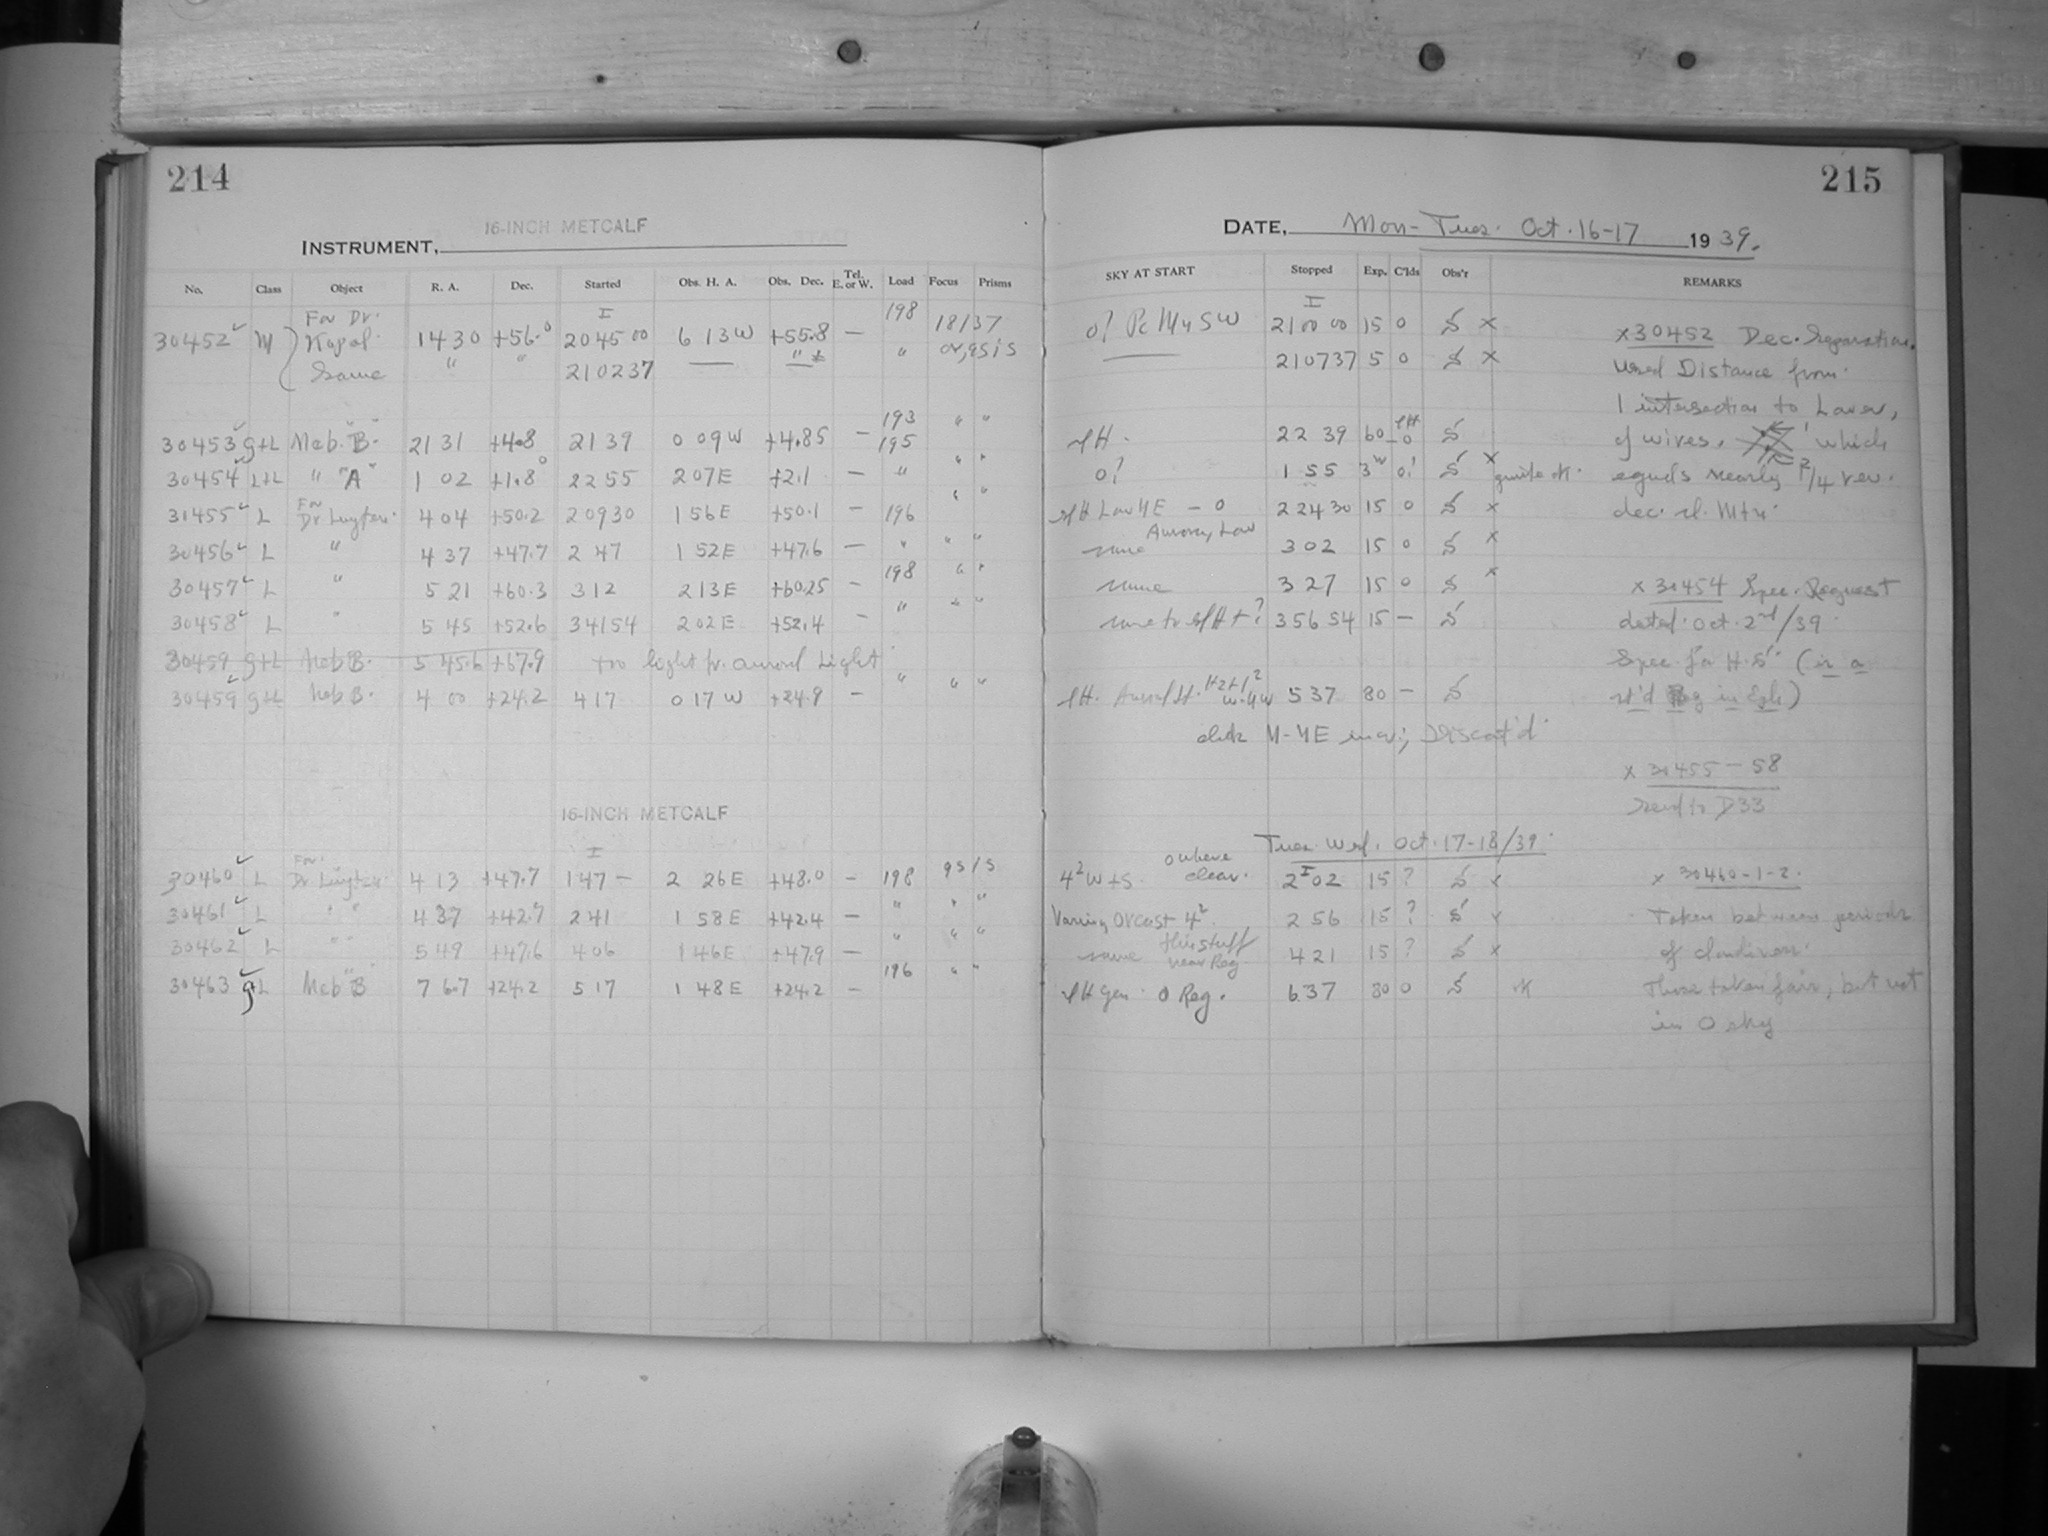 214
16-INCH METCALF
INSTRUMENT,
No. Class Object R. A. Dec. Started Obs. H. A. Obs. Dec. Tel. E. or W. Load Focus Prisms
For Dr. I 198 18/37
30452 M Kopal 14 30 +56.0 20 45 00 6 13 W +55.8 —
Same " " 21 02 37 — " "
193 " "
30453 g+L Meb. "B" 21 31 +4.8 21 39 0 09 W +4.85 — 195
30454 L+L " "A" 1 02 +1.8 22 55 2 07 E +2.1 — " " "
For
31455 L Dr Luyten 4 04 +50.2 2 09 30 1 56 E +50.1 — 196 " "
30456 L " 4 37 +47.7 2 47 1 52 E +47.6 — " " "
30457 L " 5 21 +60.3 3 12 2 13 E +60.25 — 198 " "
30458 L " 5 45 +52.6 3 41 54 2 02 E +52.4 — " " "
30459 g+L Meb B. 5 45.6 +67.9 too light fr. auroral Light
30459 g+L Meb B. 4 00 +24.2 4 17 0 17 W +24.9 — " " "
16-INCH METCALF
For I
30460 L Dr Luyten 4 13 +47.7 1 47 — 2 26 E +48.0 — 198 95/5
30461 L " " 4 37 +42.7 2 41 1 58 E +42.4 — " " "
30462 L " " 5 49 +47.6 4 06 1 46 E +47.9 — " " "
30463 g+L Meb "B" 7 6.7 +24.2 5 17 1 48 E +24.2 — 196 " "
215
DATE, Mon-Tues. Oct. 16-17 1939.
SKY AT START Stopped Exp. C'lds Obs'r REMARKS
I
21 00 00 15 0 S x x 30452 Dec. Separation.
— 21 07 37 5 0 S x Used Distance from
1 intersection to Lower,
22 39 60 S of wires, which
0? 1 55 0! S x guide equals nearly 2/4 rev.
Low NE — 0 2 24 30 15 0 S x dec. sl. Mtn.
same Aurora, Low 3 02 15 0 S x
same 3 27 15 0 S x x 30454 Spec. Request
same to 3 56 54 15 — S dated Oct. 2nd/39
Spec. for H.S. (is a
5 37 80 — S st'd Reg in Ecl.)
Discont'd
x 30455 — 58
Send to D33
Tues. Wed. Oct. 17-18/39
4² W+S. 0 where clear. 2 02 15 ? S x x 30460-1-2.
Varying Ovcast 4² 2 56 15 ? S x Taken between periods
same thin stuff near Reg. 4 21 15 ? S x of cloudiness.
Gen. 0 Reg. 6 37 80 0 S Those taken fair, but not
in 0 sky